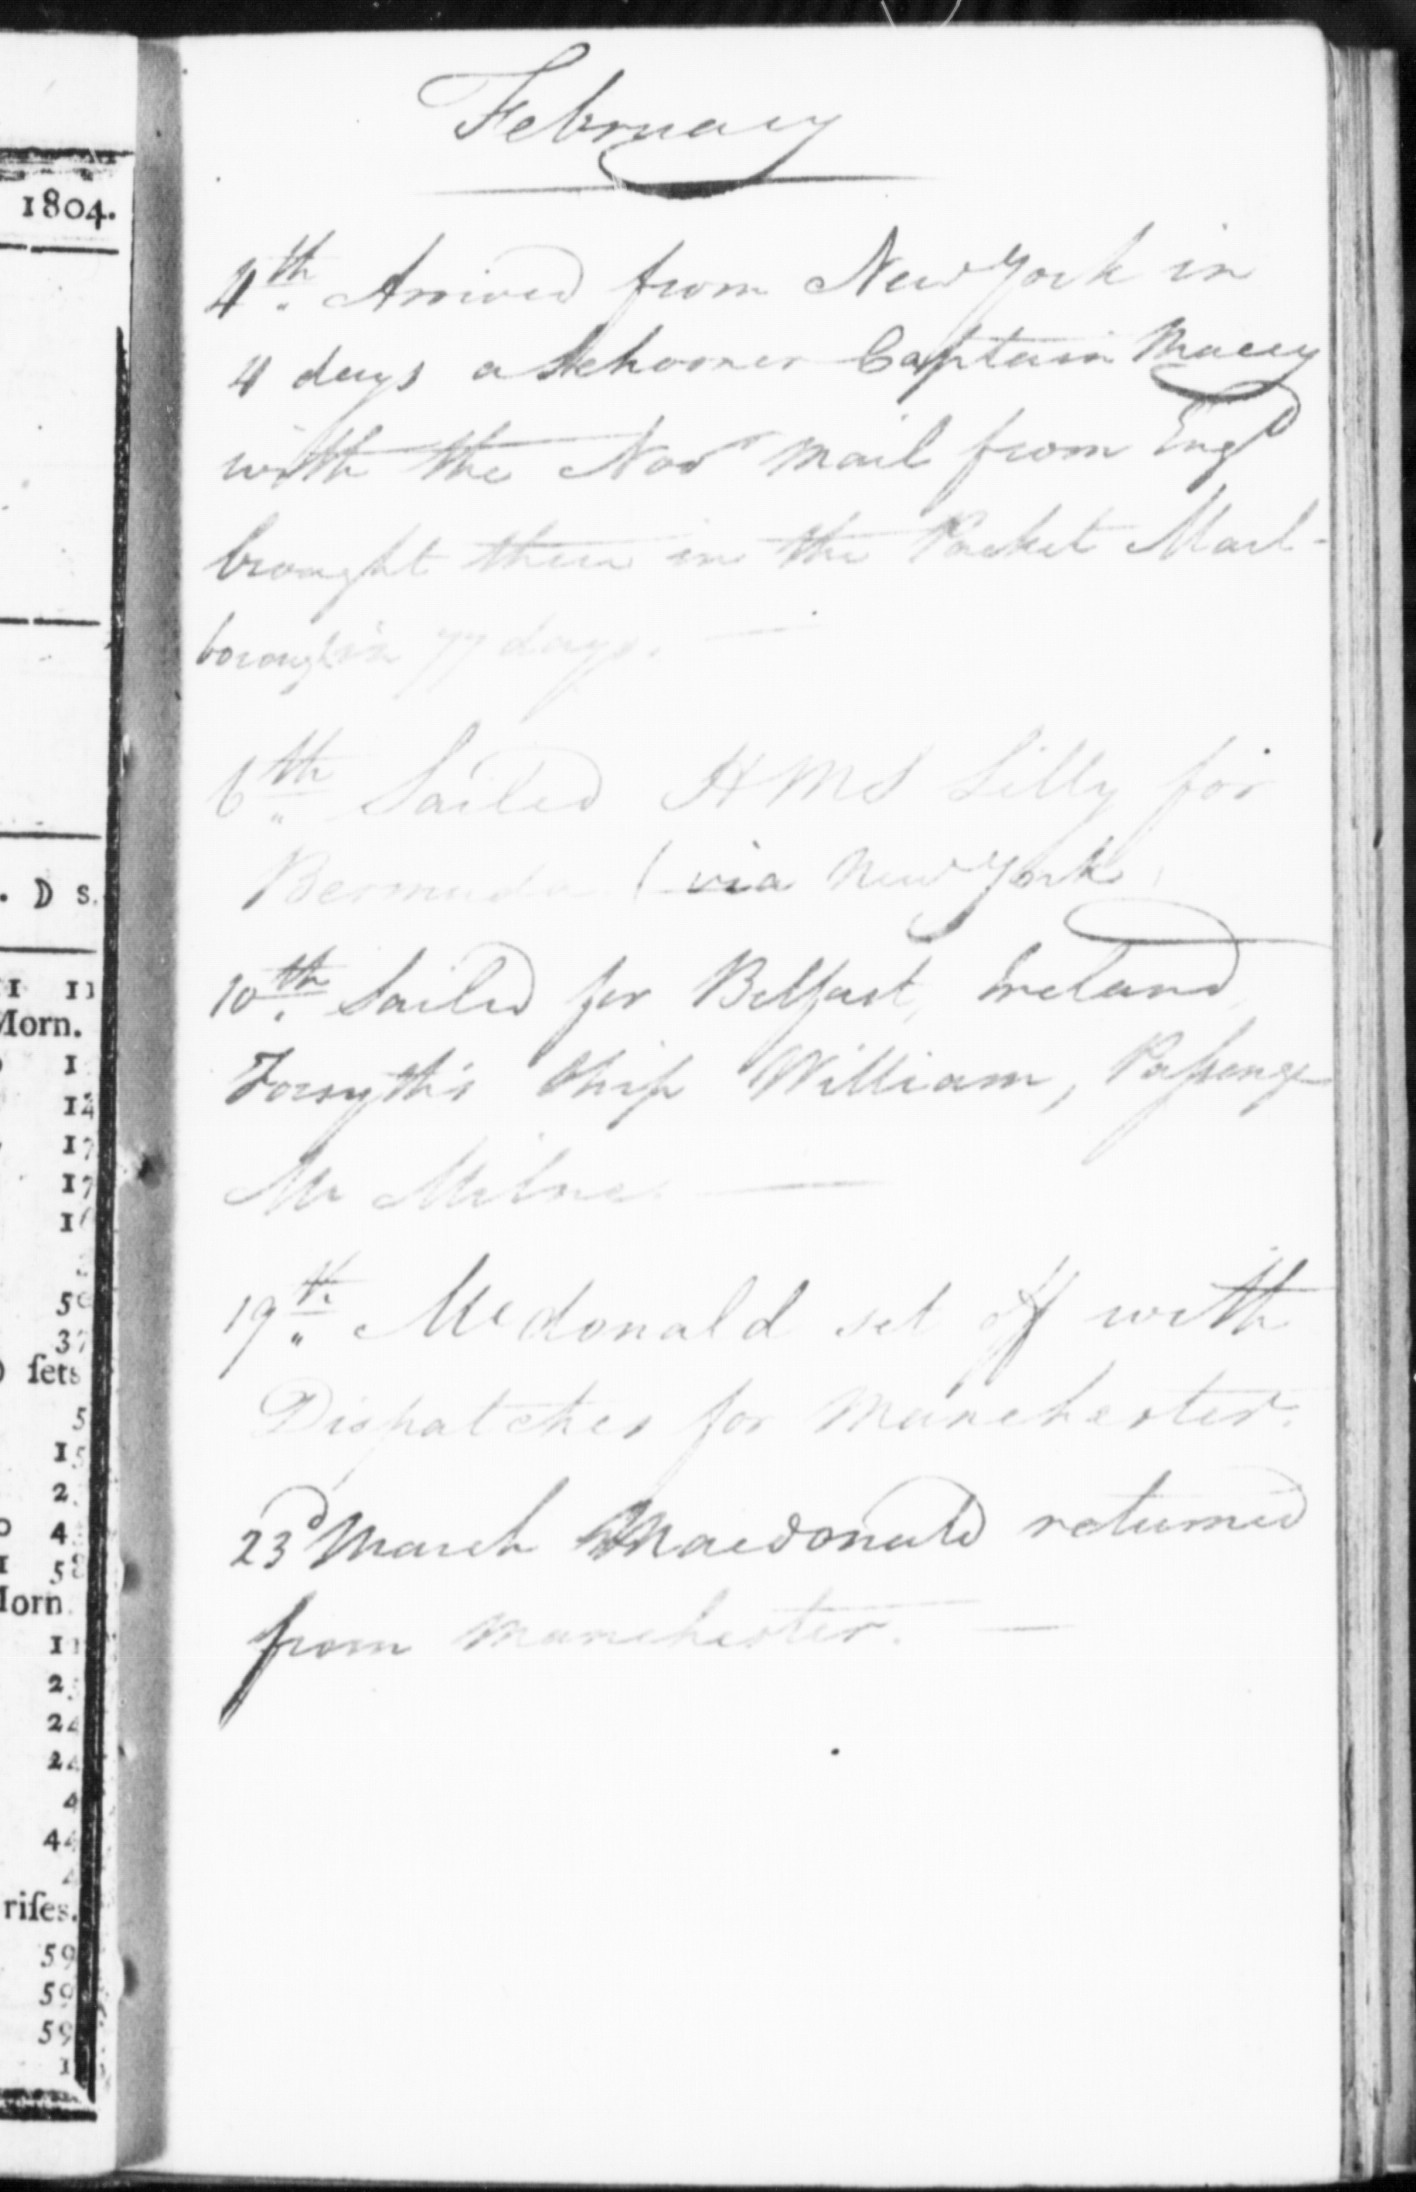 1804.
. D s.
11 11
Morn.
1
14
17
17
1
5
37
D ſets
5
15
2
4
58
Morn.
11
2
24
24
4
44
4
riſes.
59
59
59
1
February
4th. Arrived from New York in
4 days a Schooner Captain Macey
with the Novr mail from Engd
brought there in the Packet Marl-
borough in 77 days. —
6th. Sailed HMS Lilly for
Bermuda (via New York)
10th. Sailed for Belfast, Ireland,
Forsyth's Ship William, Passenger
Mr Milne. —
19th. Mcdonald set off with
Dispatches for Manchester.
23d March Macdonald returned
from Manchester. —